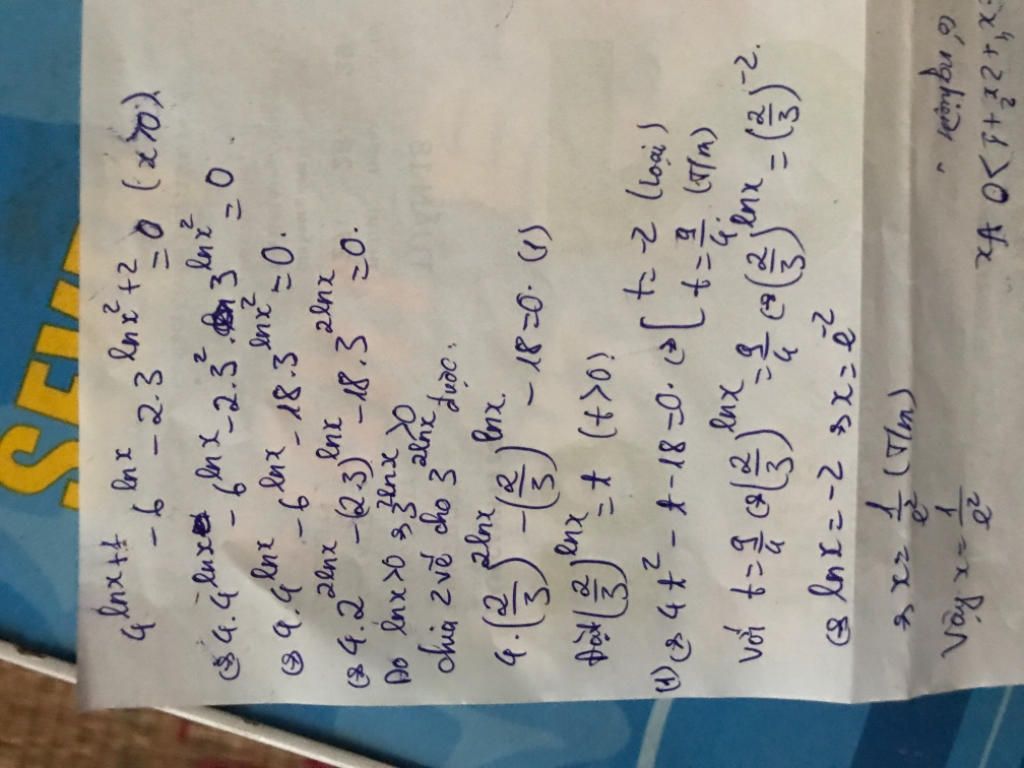 4^{lnx+1} - 6^{lnx} - 2.3^{lnx²+2} = 0 (x>0)
(=> 4.4^{lnx} - 6^{lnx} - 2.3².3^{lnx²} = 0
(=> 4.4^{lnx} - 6^{lnx} - 18.3^{lnx²} = 0.
(=> 4.2^{2lnx} - (2.3)^{lnx} - 18.3^{2lnx} = 0.
Do lnx>0 => 3^{2lnx}>0
chia 2 vế cho 3^{2lnx} được:
4.(2/3)^{2lnx} - (2/3)^{lnx} - 18=0. (1)
Đặt (2/3)^{lnx} = t (t>0)
(1) (=> 4t² - t - 18=0. (=> [ t = -2 (loại)
t = 9/4 (T/m)
Với t = 9/4 (=> (2/3)^{lnx} = 9/4 (=> (2/3)^{lnx} = (2/3)^{-2}.
(=> lnx = -2 => x = e^{-2}
=> x = 1/e² (T/m)
Vậy x = 1/e²